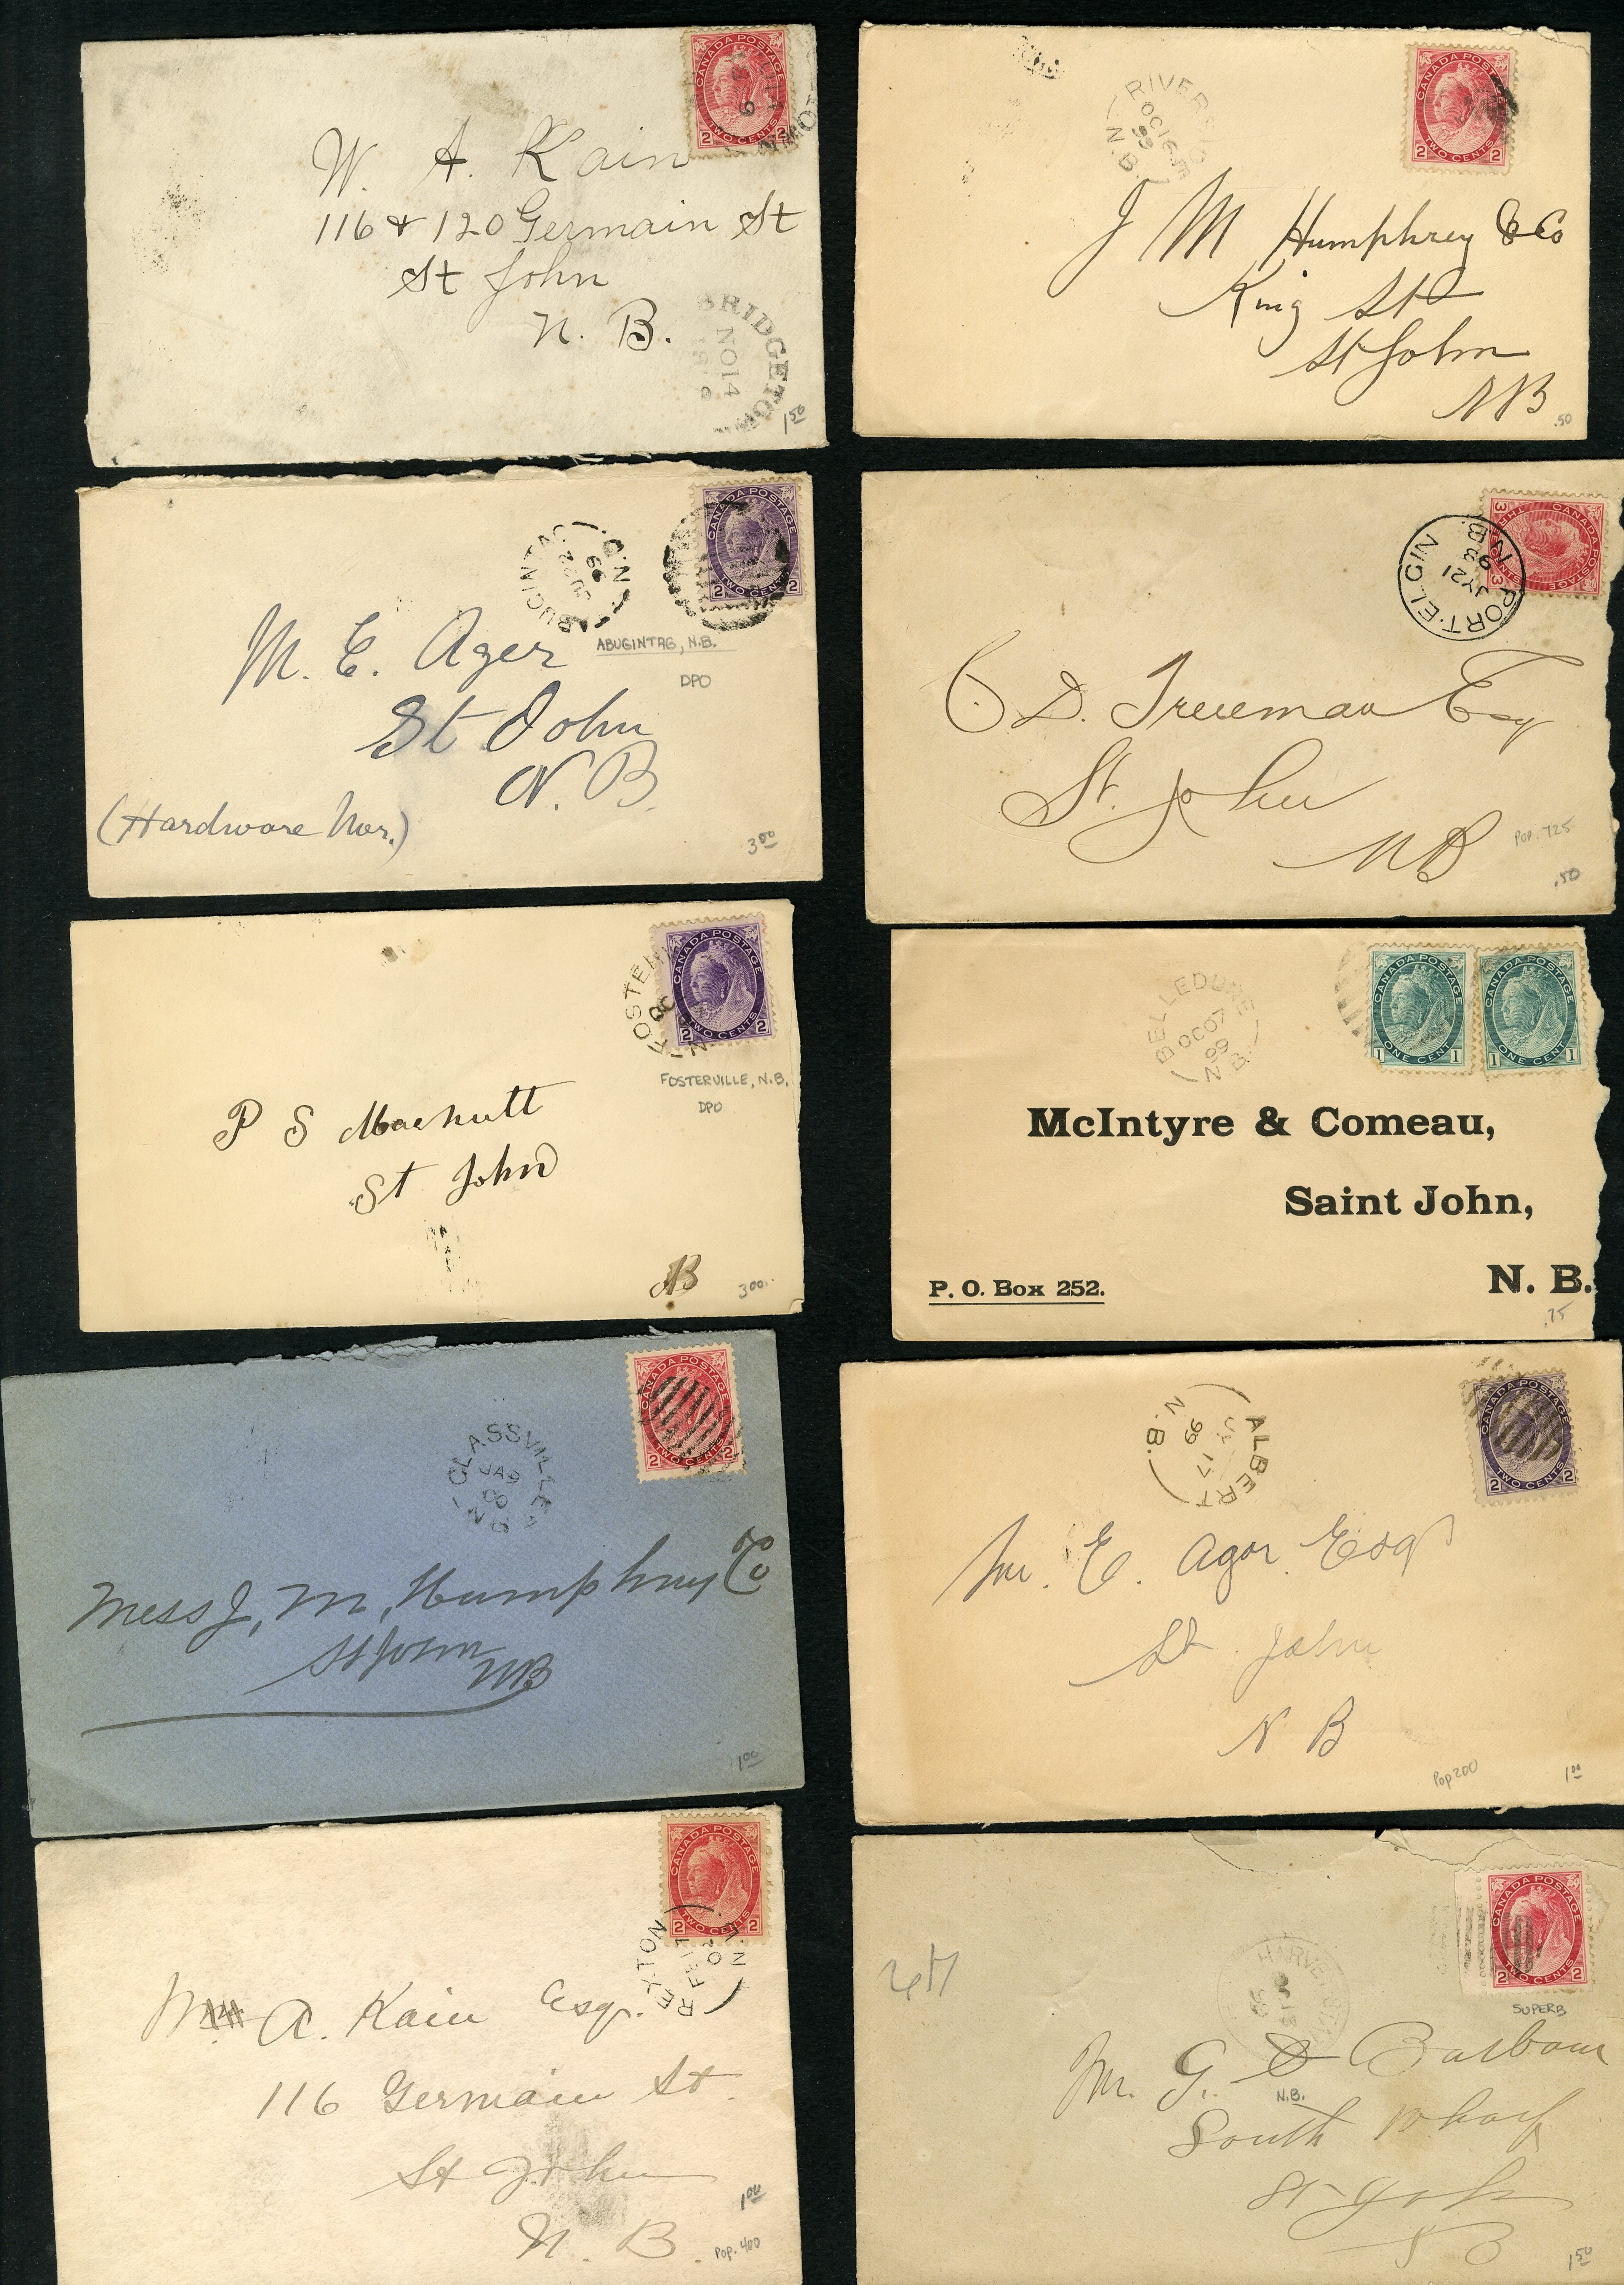 CANADA POSTAGE
2 TWO CENTS 2
W. A. Kain
116 & 120 Germain St
St John
N. B.
BRIDGETOWN
NO 14
1.50
CANADA POSTAGE
2 TWO CENTS 2
RIVER
OC 16
99
N.B.
J M Humphrey & Co
King St
St John
NB
.50
CANADA POSTAGE
2 TWO CENTS 2
99
M. E. Ager
ABUGINTAG, N.B.
DPO
St John
N. B.
(Hardware Mer.)
3.50
CANADA POSTAGE
3 CENTS 3
PORT-ELGIN
JY 21
98
N.B.
D. Trueman Esq
St. John
NB
Pop. 725
.50
CANADA POSTAGE
2 TWO CENTS 2
FOSTER
OC
N.
FOSTERVILLE, N.B.
DPO
P S Macnutt
St John
NB
3.00
CANADA POSTAGE
1 ONE CENT 1
CANADA POSTAGE
1 ONE CENT 1
BELLEDUNE
OC 07
99
N.B.
McIntyre & Comeau,
Saint John,
N. B.
P. O. Box 252.
.75
CANADA POSTAGE
2 TWO CENTS 2
GLASSVILLE
JA 9
00
N.B.
Mess J, M, Humphrey Co
St John
NB
1.00
CANADA POSTAGE
2 TWO CENTS 2
ALBERT
17
99
N.B.
M. E. Agar Esq
St. John
N B
Pop 200
1.00
CANADA POSTAGE
2 TWO CENTS 2
REXTON
FE 17
02
N.B.
A. Kain Esq.
116 Germain St.
St John
N. B.
1.00
Pop. 400
CANADA POSTAGE
2 TWO CENTS 2
SUPERB
HARVEY
Mr. G. D Barbour
N.B.
South Wharf
St John
N B
1.50